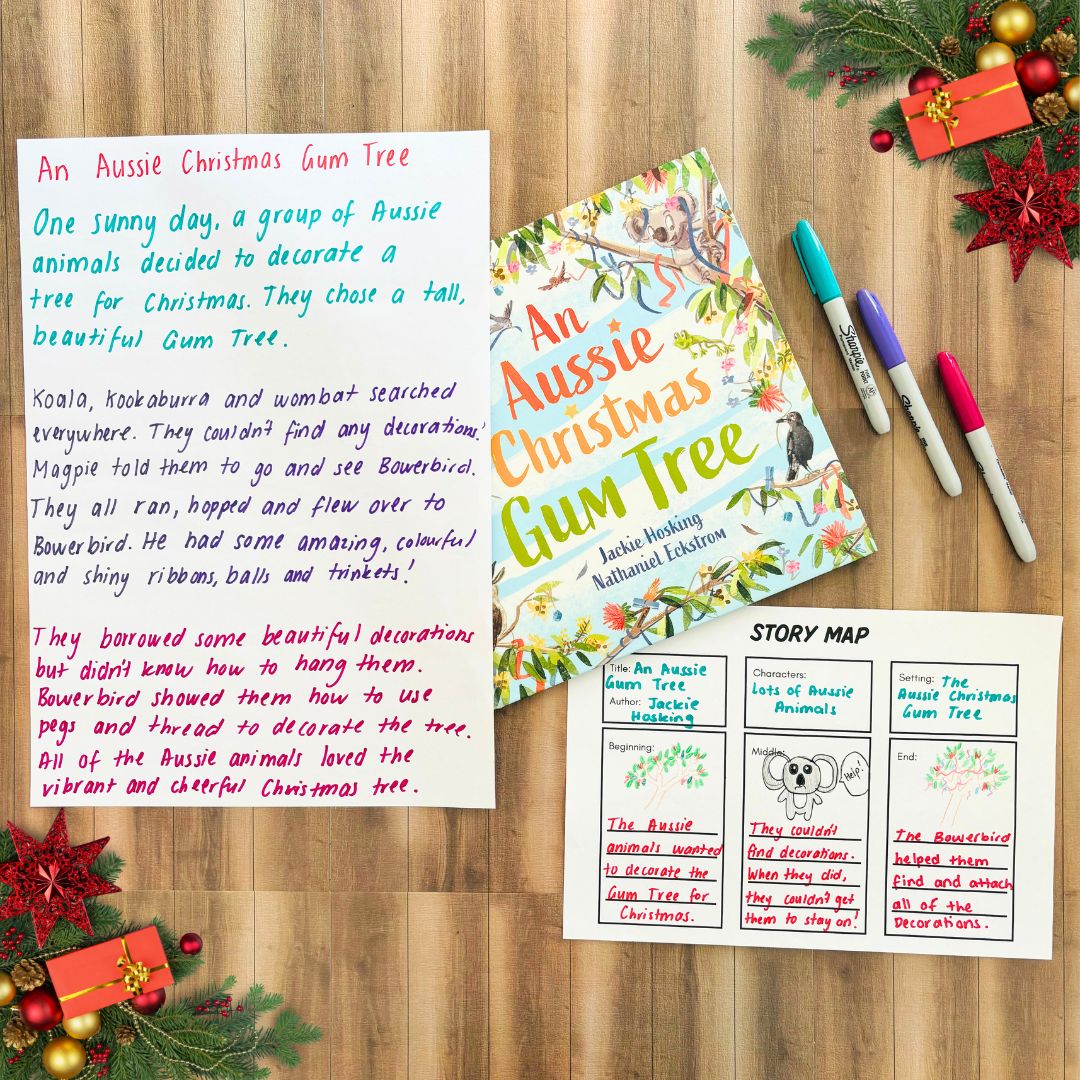 An Aussie Christmas Gum Tree
One sunny day, a group of Aussie
animals decided to decorate a
tree for Christmas. They chose a tall,
beautiful Gum Tree.
Koala, Kookaburra and wombat searched
everywhere. They couldn't find any decorations!
Magpie told them to go and see Bowerbird.
They all ran, hopped and flew over to
Bowerbird. He had some amazing, colourful
and shiny ribbons, balls and trinkets!
They borrowed some beautiful decorations
but didn't know how to hang them.
Bowerbird showed them how to use
pegs and thread to decorate the tree.
All of the Aussie animals loved the
vibrant and cheerful Christmas tree.
An
Aussie
Christmas
Gum Tree
Jackie Hosking
Nathaniel Eckstrom
Sharpie
Sharpie
Sharpie
STORY MAP
Title: An Aussie
Gum Tree
Author: Jackie
Hosking
Characters:
Lots of Aussie
Animals
Setting: The
Aussie Christmas
Gum Tree
Beginning:
The Aussie
animals wanted
to decorate the
Gum Tree for
Christmas.
Middle:
Help!
They couldn't
find decorations.
When they did,
they couldn't get
them to stay on!
End:
The Bowerbird
helped them
find and attach
all of the
Decorations.